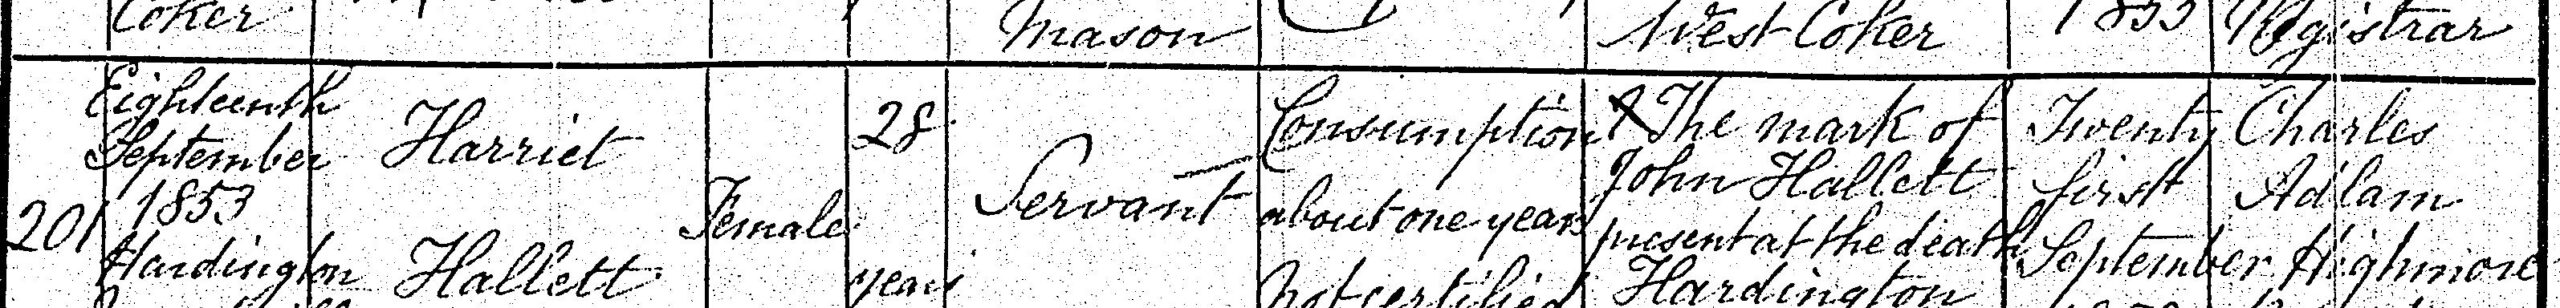 Coker
Mason
West Coker
1853
Registrar
201
Eighteenth
September
1853
Hardington
Harriet
Hallett
Female
28
years
Servant
Consumption
about one year
Not certified
X The mark of
John Hallett
present at the death
Hardington
Twenty
first
September
Charles
Adlam
Highmore